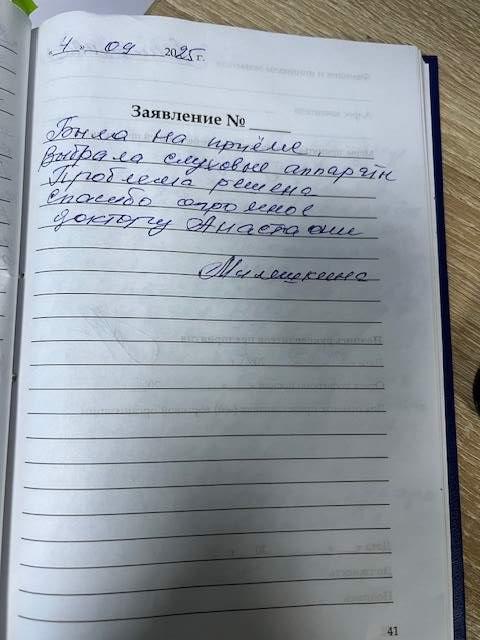 « 4 » 09 2025 г.
Заявление №
Была на приёме.
Выбрала слуховые аппараты
Проблема решена
Спасибо огромное
доктору Анастасии
Милешкина
41